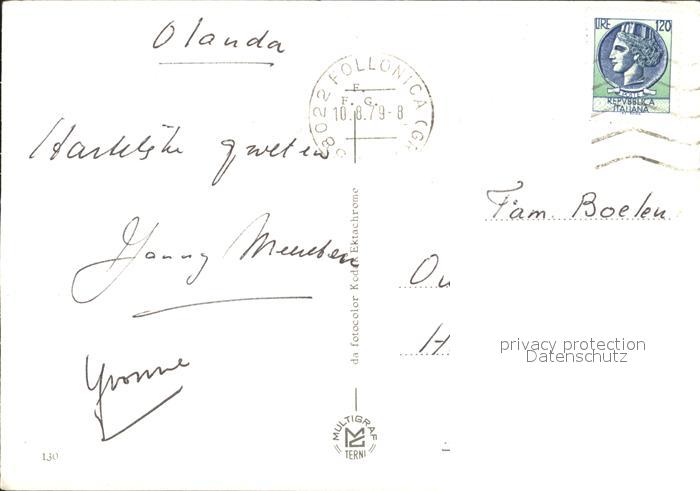 Olanda
LIRE 120
POSTE
REPVBBLICA
ITALIANA
58022 FOLLONICA (GR)
F.
F. G.
10.8.79-8
Hartelijke groeten
Fam. Boelen
Janny
Ou
H
privacy protection
Datenschutz
Yvonne
da fotocolor Kodak Ektachrome
MULTIGRAF
TERNI
130